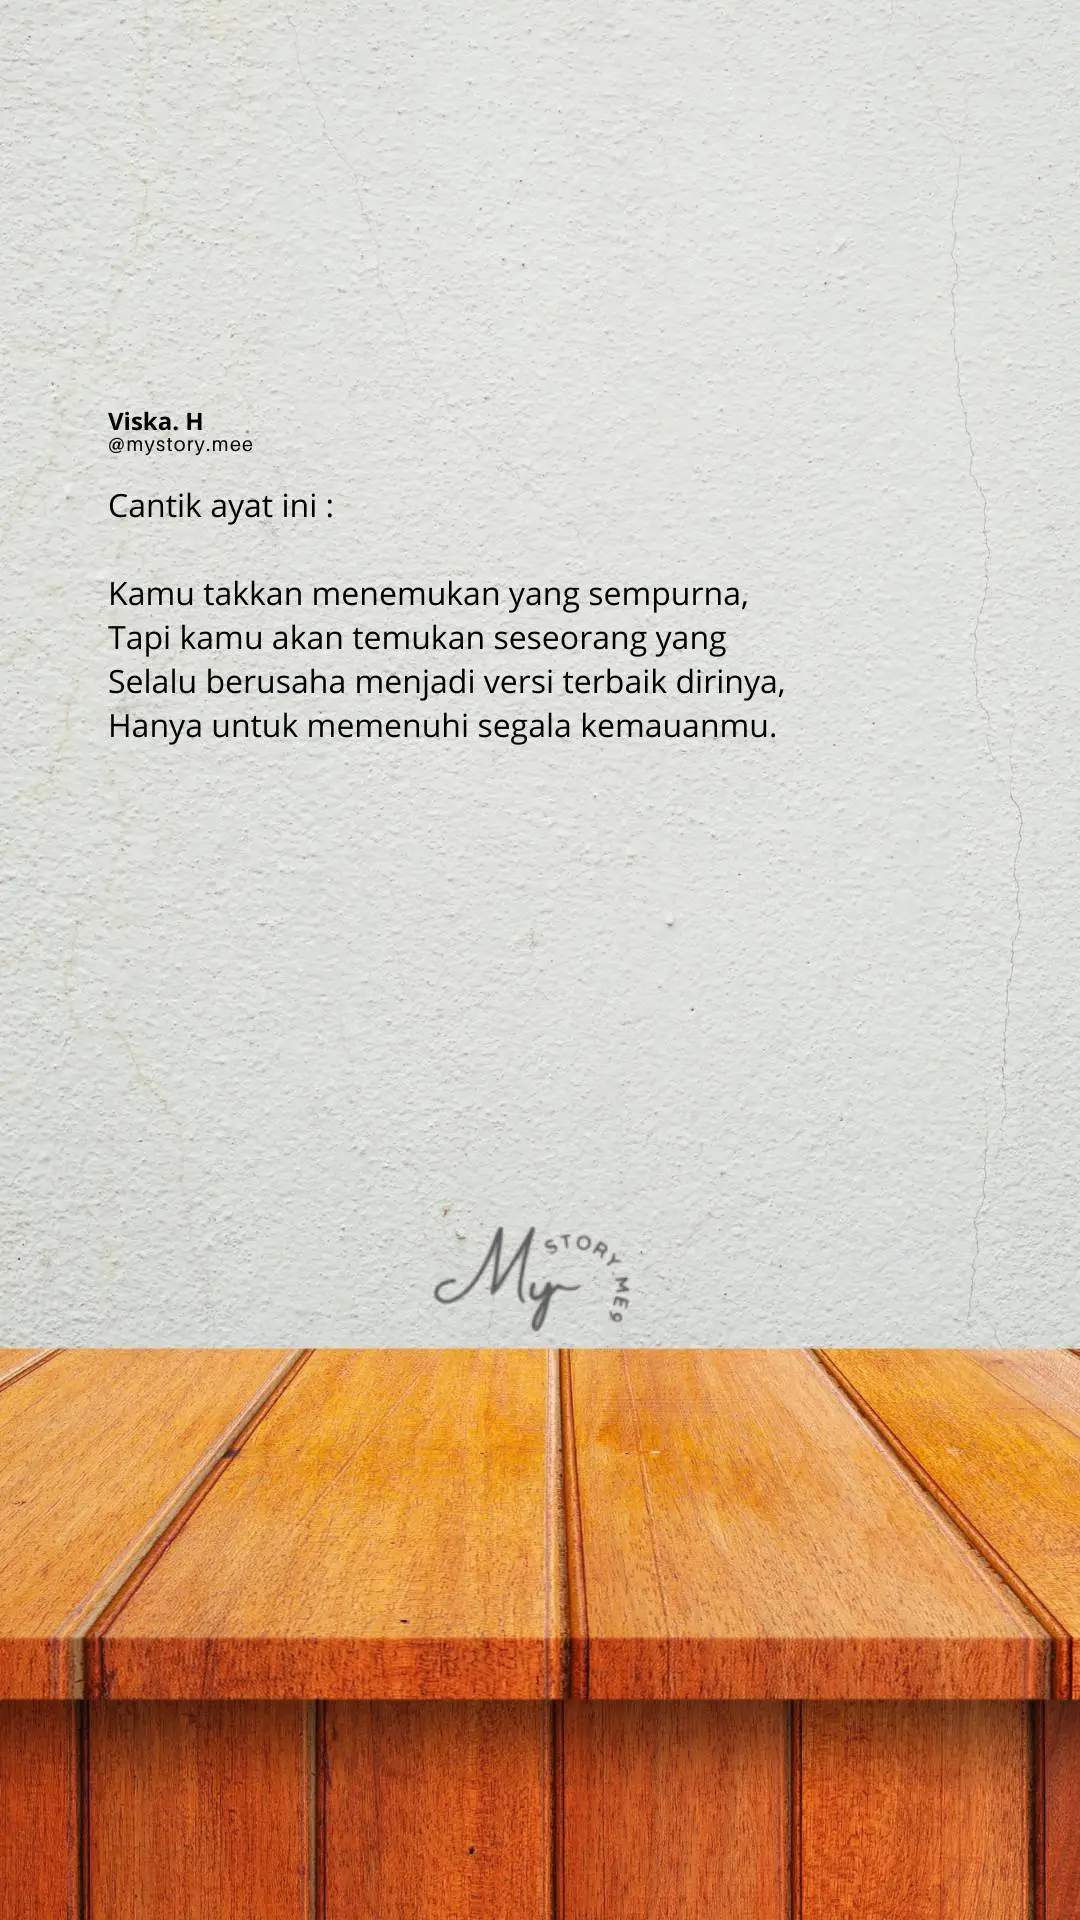 Viska. H
@mystory.mee
Cantik ayat ini :
Kamu takkan menemukan yang sempurna,
Tapi kamu akan temukan seseorang yang
Selalu berusaha menjadi versi terbaik dirinya,
Hanya untuk memenuhi segala kemauanmu.
My STORY MEe